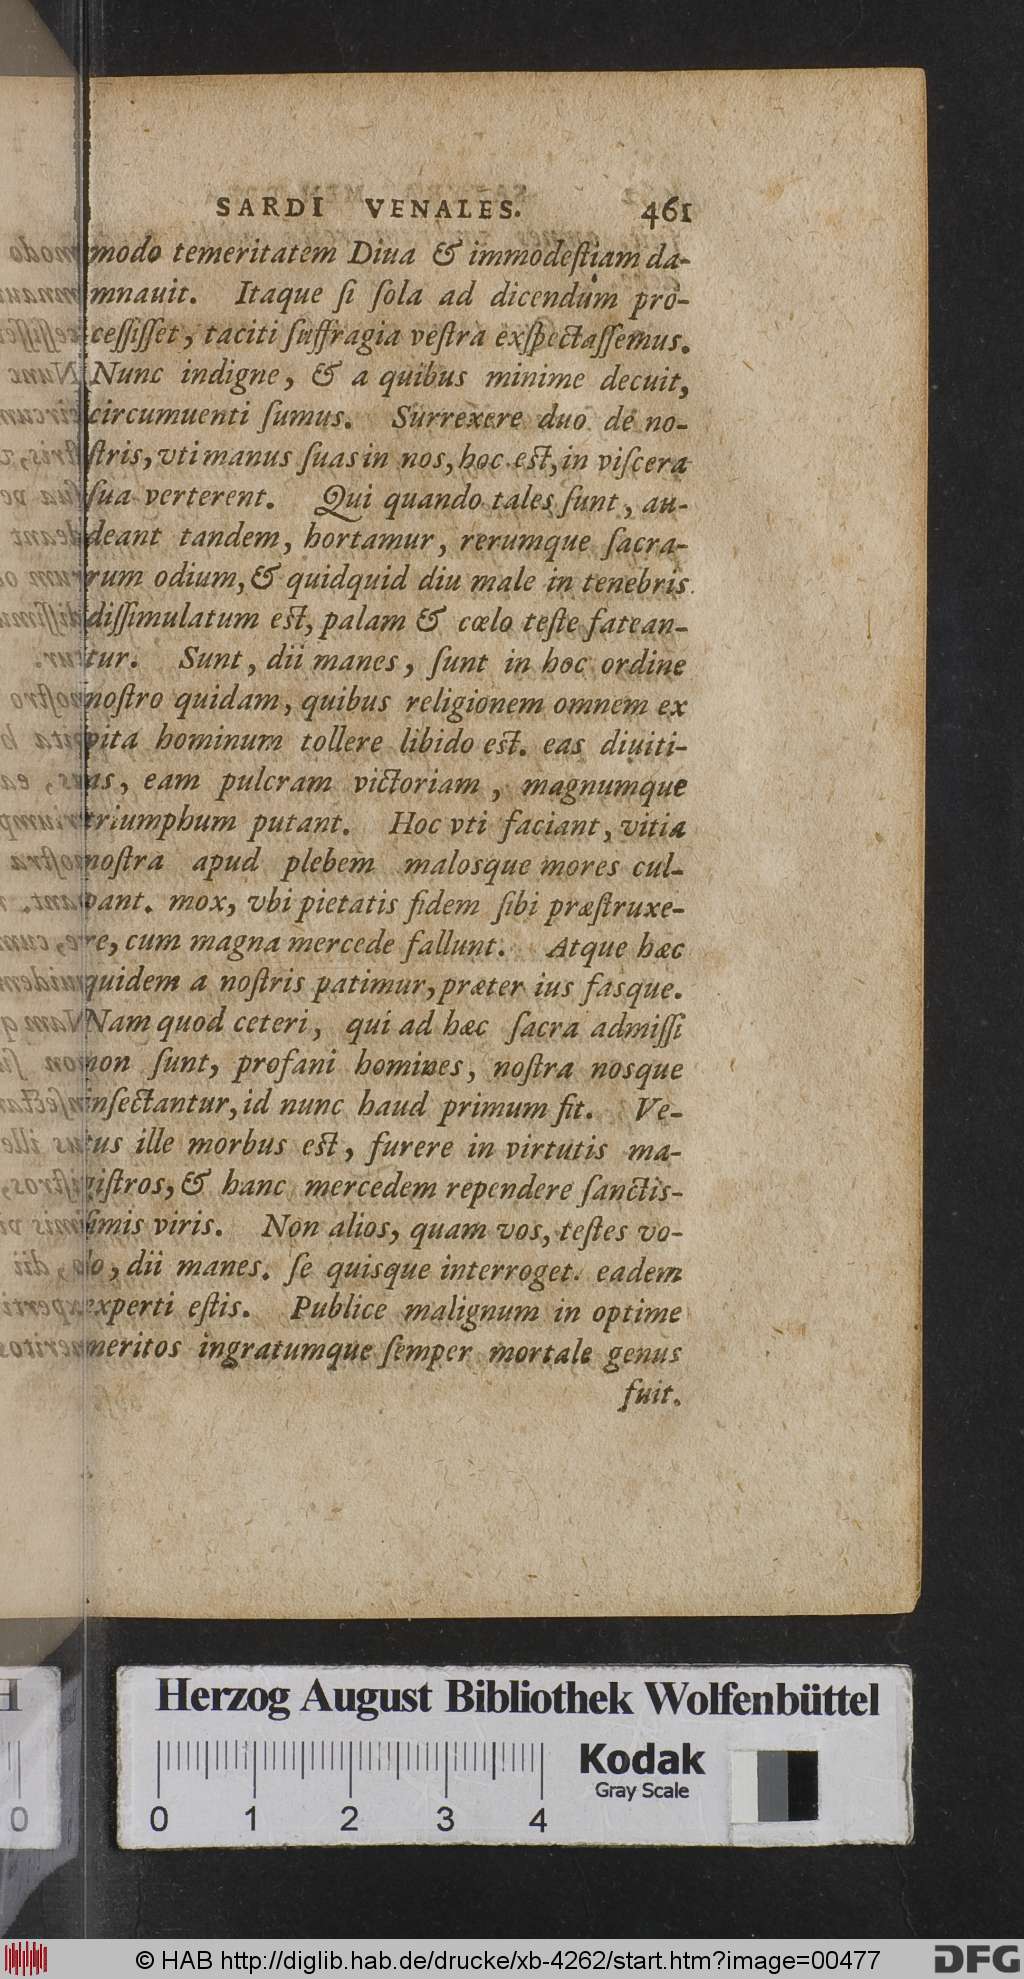 SARDI VENALES. 461
modo temeritatem Diua & immodeſtiam da-
mnauit. Itaque ſi ſola ad dicendum pro-
ceſſiſſet, taciti ſuffragia veſtra exſpectaſſemus.
Nunc indigne, & a quibus minime decuit,
circumuenti ſumus. Surrexere duo de no-
ſtris, vti manus ſuas in nos, hoc est, in viſcera
ſua verterent. Qui quando tales ſunt, au-
deant tandem, hortamur, rerumque ſacra-
rum odium, & quidquid diu male in tenebris
diſſimulatum est, palam & cœlo teſte fatean-
tur. Sunt, dii manes, ſunt in hoc ordine
noſtro quidam, quibus religionem omnem ex
pita hominum tollere libido est. eas diuiti-
as, eam pulcram victoriam, magnumque
triumphum putant. Hoc vti faciant, vitia
noſtra apud plebem malosque mores cul-
pant. mox, vbi pietatis fidem ſibi præſtruxe-
re, cum magna mercede fallunt. Atque hæc
quidem a noſtris patimur, præter ius fasque.
Nam quod ceteri, qui ad hæc ſacra admiſſi
non ſunt, profani homines, noſtra nosque
inſectantur, id nunc haud primum fit. Ve-
tus ille morbus est, furere in virtutis ma-
giſtros, & hanc mercedem rependere ſanctis-
ſimis viris. Non alios, quam vos, teſtes vo-
lo, dii manes. ſe quisque interroget. eadem
experti eſtis. Publice malignum in optime
meritos ingratumque ſemper mortale genus
fuit.
Herzog August Bibliothek Wolfenbüttel
Kodak
Gray Scale
0 1 2 3 4
© HAB http://diglib.hab.de/drucke/xb-4262/start.htm?image=00477
DFG